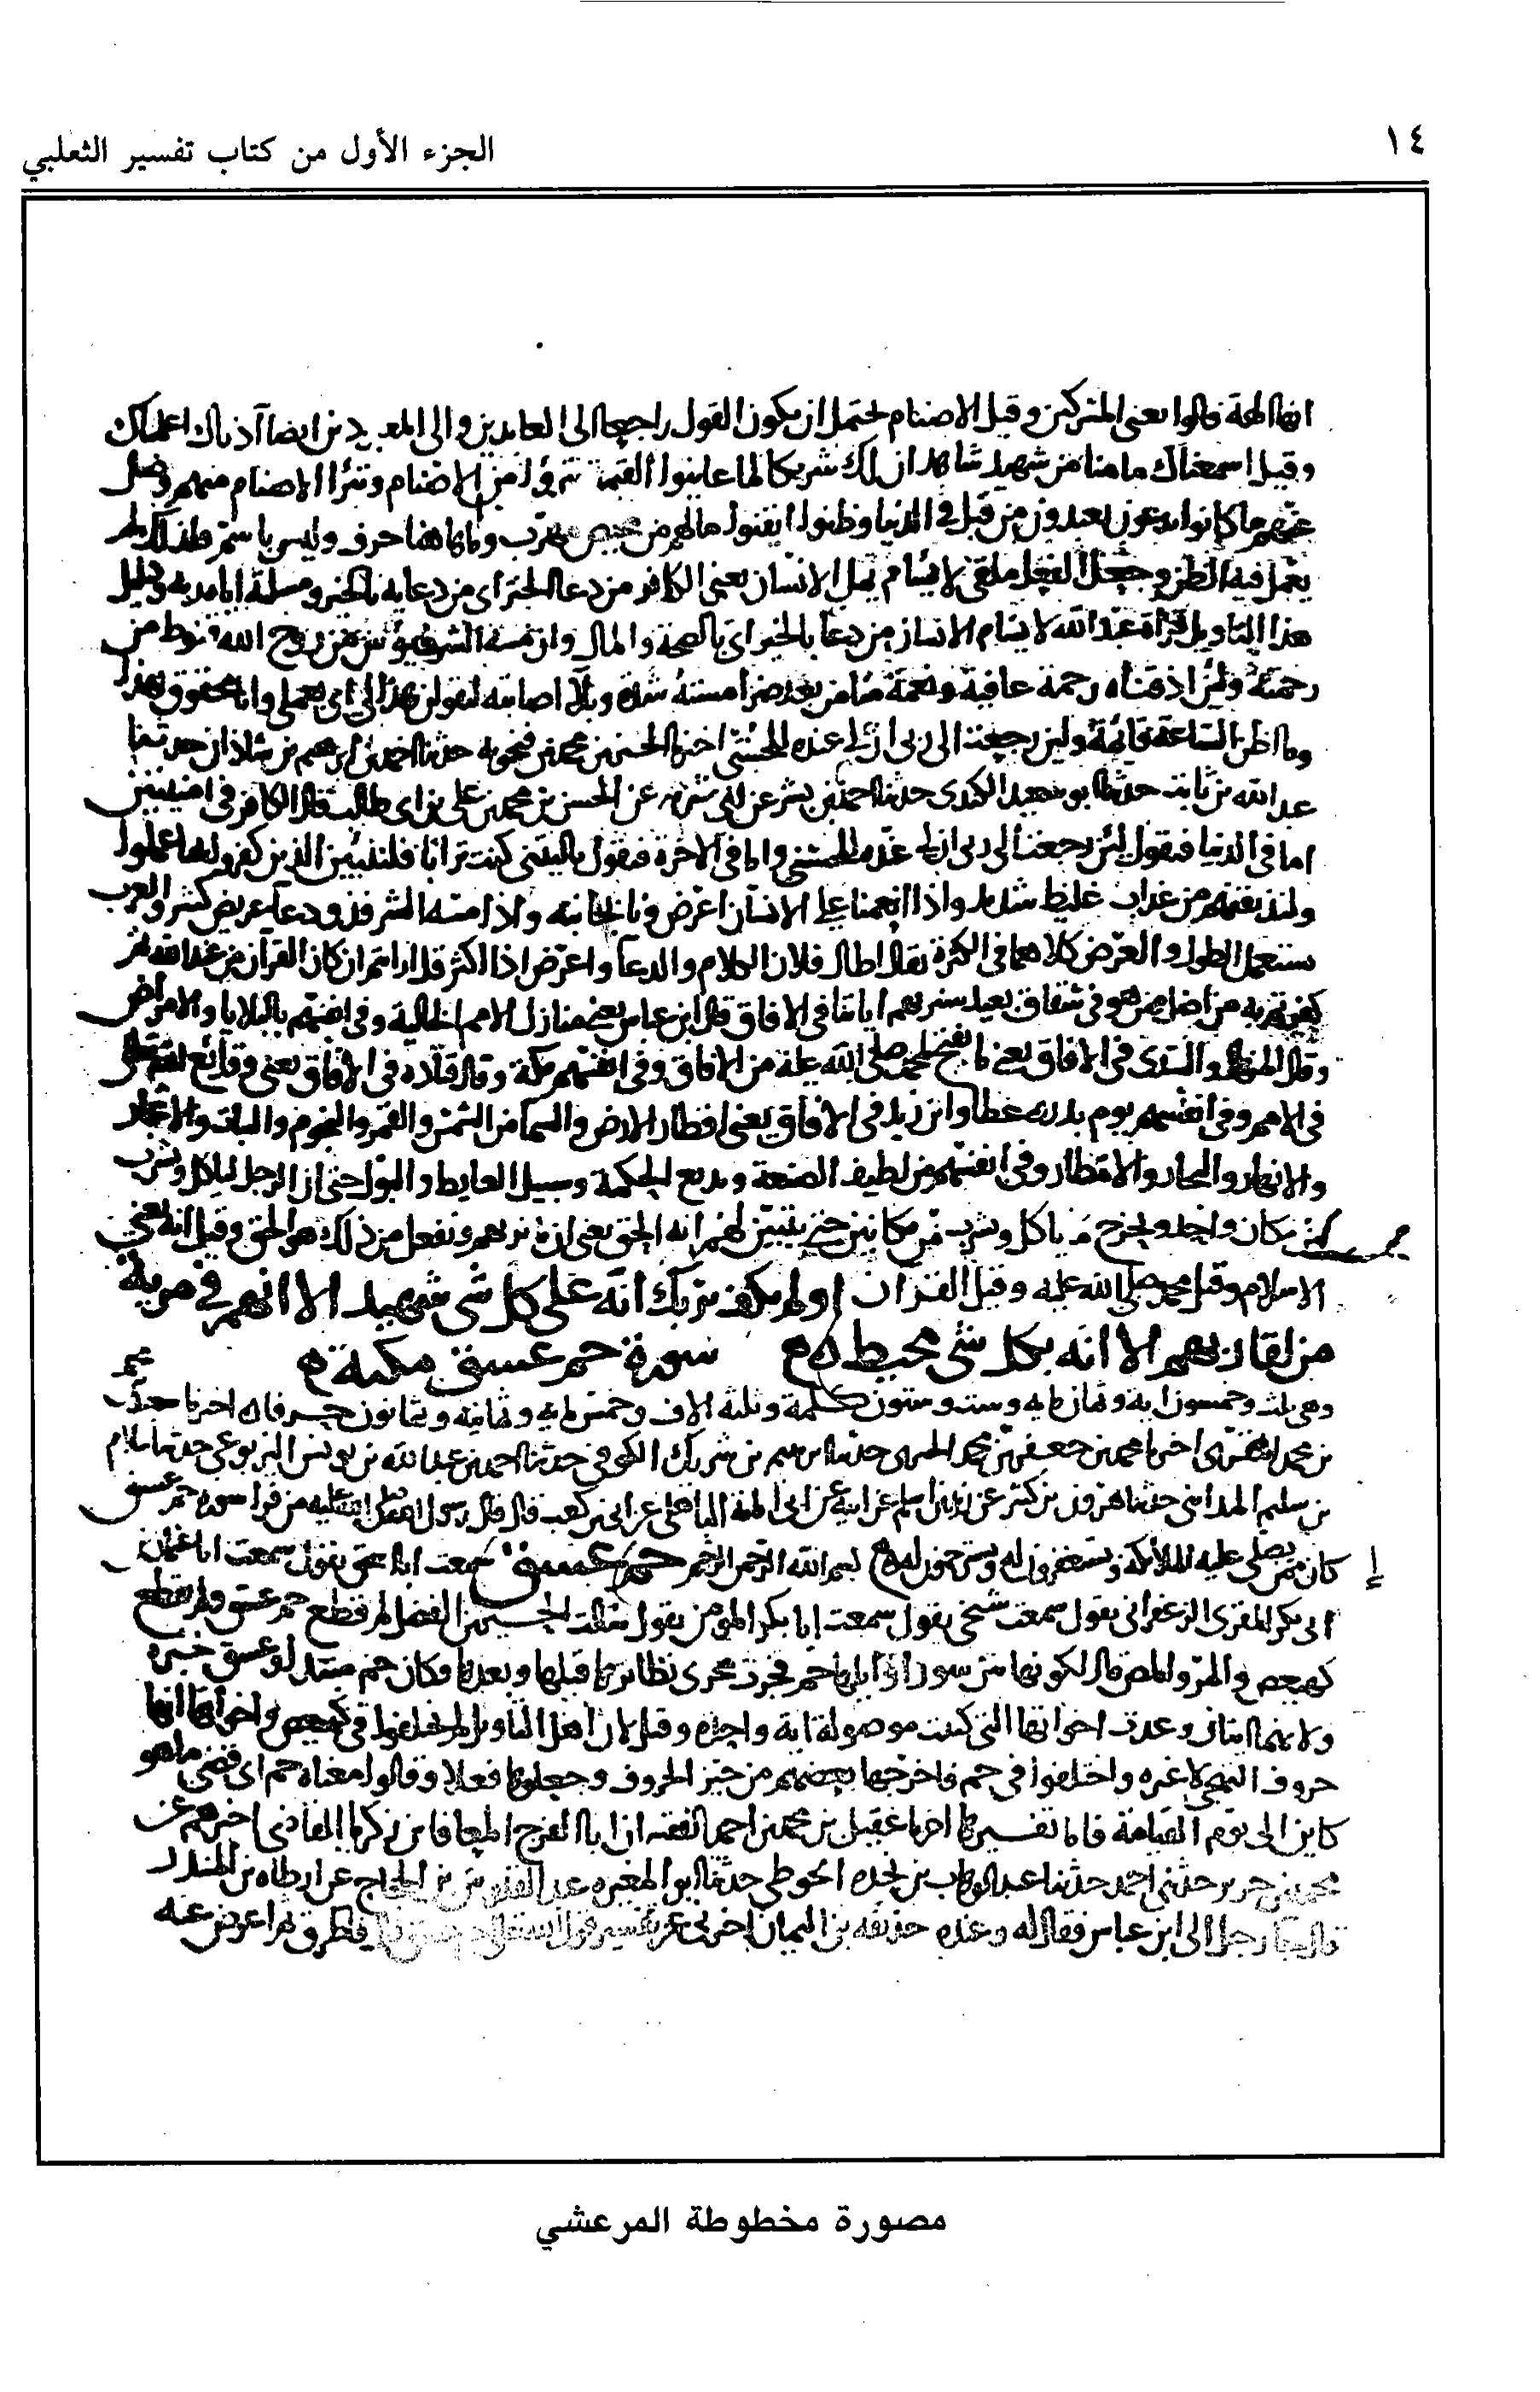 ١٤
الجزء الأول من كتاب تفسير الثعلبي
انها الهة قالوا يعني المشركين وقيل الاصنام يحتمل ان يكون القول راجعا الى العابدين والى المعبودين ايضا آذناك اعلمناك
وقيل اسمعناك ما منا من شهيد شاهد ان لك شريكا لما عاينوا القيمة تبرؤا من الاصنام وتبرا الاصنام منهم وضل
عنهم ما كانوا يدعون يعبدون من قبل في الدنيا وظنوا ايقنوا ما لهم من محيص مهرب وما هاهنا حرف وليس باسم فلذلك لم
يعمل فيه الظن وجعل الفعل ملقى لا يسام يمل الانسان يعني الكافر من دعا الخير اي من دعايه بالخير ومسلة اياه ربه ودليل
هذا التاويل قراة عبد الله لا يسام الانسان من دعا بالخير اي بالصحة والمال وان مسه الشر فيؤس من روح الله قنوط من
رحمته ولئن اذقناه رحمة عافية ونعمة منا من بعد ضرا مسته شدة وبلا اصابته ليقولن هذا لي اي بعملي وانا محقوق بهذا
وما اظن الساعة قائمة ولين رجعت الى ربي ان لي عنده للحسنى اخبرنا الحسين بن محمد بن فنجويه حدثنا احمد بن ابرهيم بن شاذان حدثنا
عبد الله بن ثابت حدثنا ابو سعيد الكندي حدثنا احمد بن بشر عن ابن شبرمه عن الحسن بن محمد بن علي بن ابي طالب قال الكافر في امنيتين
اما في الدنيا فيقول لئن رجعت الى ربي ان لي عنده للحسنى واما في الاخرة فيقول يا ليتني كنت ترابا فلننبئن الذين كفروا بما عملوا
ولنذيقنهم من عذاب غليظ شديد واذا انعمنا على الانسان اعرض ونا بجانبه واذا مسه الشر فذو دعا عريض كثير والعرب
تستعمل الطول والعرض كلاهما في الكثرة يقال اطال فلان الكلام والدعا واعرض اذا اكثر قل ارايتم ان كان القرآن من عند الله ثم
كفرتم به من اضل ممن هو في شقاق بعيد سنريهم اياتنا في الافاق قال ابن عباس يعني منازل الامم الخالية وفي انفسهم بالبلايا والامراض
وقال المنهال والسدى في الافاق يعني ما يفتح لمحمد صلى الله عليه من الافاق وفي انفسهم مكة وقال قتادة في الافاق يعني وقائع الله تعالى
في الامم وفي انفسهم يوم بدر عطا وابن زيد في الافاق يعني اقطار الارض والسما من الشمس والقمر والنجوم والنبات والاشجار
والانهار والبحار والامطار وفي انفسهم من لطيف الصنعة وبديع الحكمة وسبيل الغايط والبول حتى ان الرجل لياكل ويشرب
من مكان واحد ويخرج ما ياكل ويشرب من مكانين حتى يتبين لهم انه الحق يعني ان ما نريهم ونفعل من ذلك هو الحق وقيل انه يعني
الاسلام وقيل محمد صلى الله عليه وقيل القران اولم يكف بربك انه على كل شي شهيد الا انهم في مرية
من لقا ربهم الا انه بكل شي محيط سورة حم عسق مكية
وهي ثلث وخمسون اية وثمان مايه وست وستون كلمة وثلثة الاف وخمس مايه وثمانية وثمانون حرفا اخبرنا
بن محمد المقرى اخبرنا محمد بن جعفر بن محمد حدثنا ابرهيم بن شريك الكوفي حدثنا احمد بن عبد الله بن يونس اليربوعي حدثنا سلام
بن سليم المدايني حدثنا هرون بن كثير عن زيد بن اسلم عن ابيه عن ابي امامة الباهلي عن ابي بن كعب قال قال رسول الله صلى الله عليه من قرا سورة حم عسق
كان ممن يصلي عليه الملائكة ويستغفرون له ويسترحمون له بسم الله الرحمن الرحيم حم عسق سمعت ابا اسحق يقول سمعت ابا عثمان
ابي بكر المقرى الزعفراني يقول سمعت شيخي يقول سمعت ابا بكر المؤمن يقول سالت الحسين بن الفضل لم قطع حم عسق ولم يقطع
كهيعص والمر والمص قال لكونها من سور اوايلها حم فجرت مجرى نظايرها قبلها وبعدها فكان حم مبتدا وعسق خبره
ولانهما ايتان وعدت اخواتها التي كتبت موصولة اية واحدة وقيل لان اهل التاويل لم يختلفوا في كهيعص واخواتها انها
حروف التهجي لا غيره واختلفوا في حم فاخرجها بعضهم من حيز الحروف وجعلوها فعلا وقالوا معناه حم اي قضي ما هو
كاين الى يوم القيامة فاما تفسيرها اخبرنا عقيل بن محمد بن احمد الفقيه ان ابا الفرج المعافا بن زكريا القاضي اخبرهم عن
محمد بن جرير حدثني احمد حدثنا عبد الوهاب بن نجده الحوطي حدثنا ابو المغيره عبد القدوس بن الحجاج عن ارطاه بن المنذر
قال جا رجل الى ابن عباس فقال له وعنده حذيفه بن اليمان اخبرني عن تفسير قول الله تعالى حم عسق قال فاطرق ثم اعرض عنه
مصورة مخطوطة المرعشي